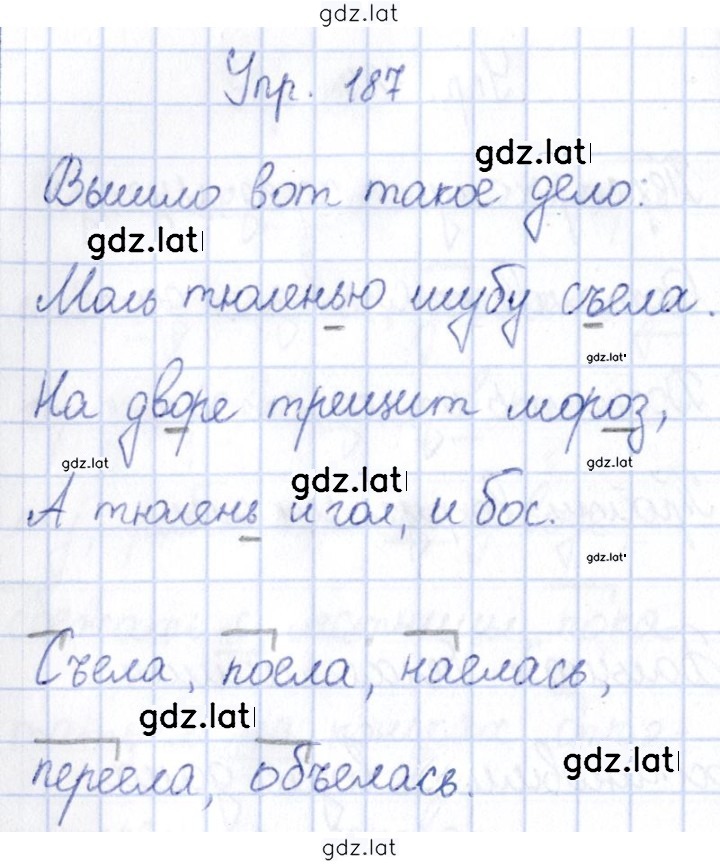 gdz.lat
Упр. 187
gdz.lat
Вышло вот такое дело:
gdz.lat
Моль тюленью шубу съела.
gdz.lat
На дворе трещит мороз,
gdz.lat gdz.lat gdz.lat
А тюлень и гол, и бос.
gdz.lat
Съела, поела, наелась,
gdz.lat
переела, объелась.
gdz.lat
gdz.lat